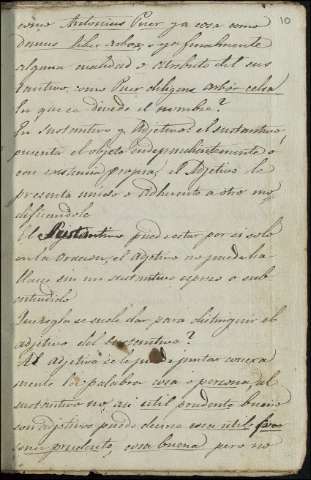 10
como Antonius Puer ya cosa como
domus liber arbor, ya finalmente
alguna qualidad o atributo del sus
tantivo, como Puer diligens arbor celsa
En que se divide el nombre?
En sustantivo y Adjetivo: el sustantivo
presenta el objeto independientemente o
con existencia propia; el Adjetivo le
presenta unido o adherente a otro mo
dificandole
El Sustantivo puede estar por si solo
en la Oracion; el adjetivo no puede ha
llarse sin un sustantivo espreso o sub
entendido
Que regla se suele dar para distinguir el
adjetivo del sustantivo?
Al adjetivo se le puede juntar
mente la palabra cosa o persona, al
sustantivo no, asi util prudente bueno
son adjetivos puedo decirse cosa util per
sona prudente, cosa buena pero no